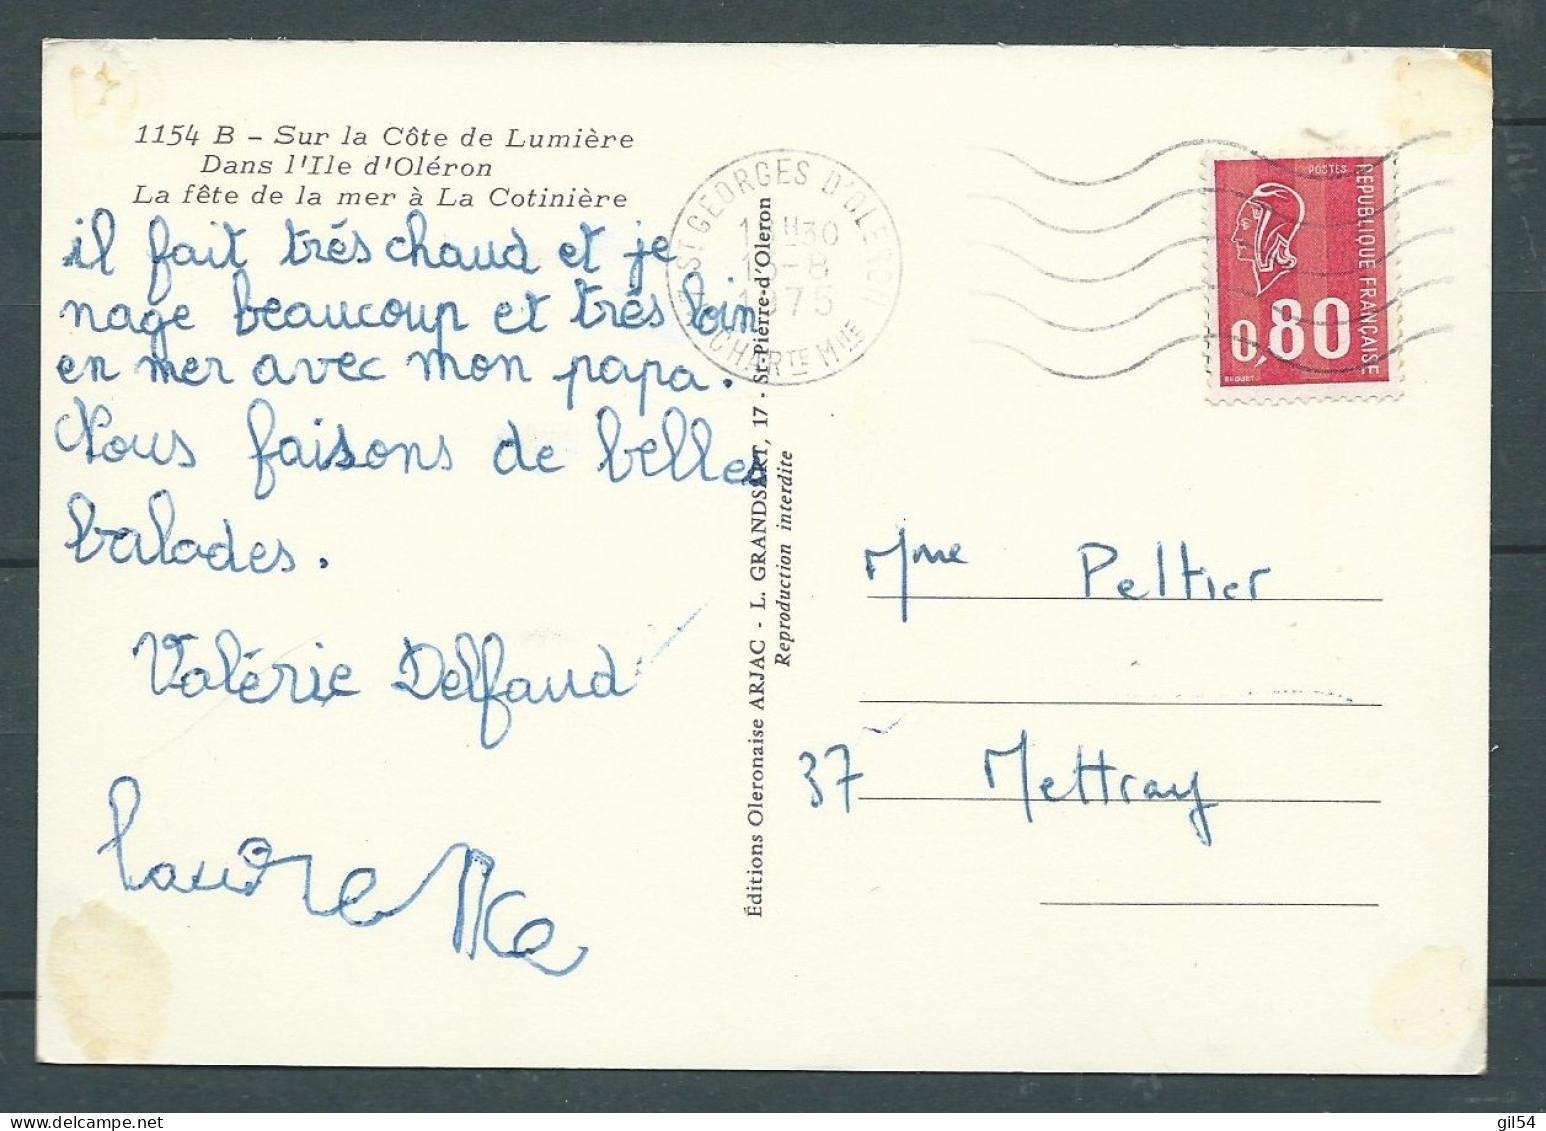 1154 B – Sur la Côte de Lumière
Dans l'Ile d'Oléron
La fête de la mer à La Cotinière
il fait trés chaud et je
nage beaucoup et trés loin
en mer avec mon papa.
Nous faisons de belles
balades.
Valérie Delfaud
laurette
Éditions Oleronaise ARJAC - L. GRANDSART, 17 - St-Pierre-d'Oleron
Reproduction interdite
ST GEORGES D'OLERON
30
8
1975
CHARTE MME
POSTES
REPUBLIQUE FRANÇAISE
0,80
BEQUET
Mme Peltier
37 Mettray
gil54